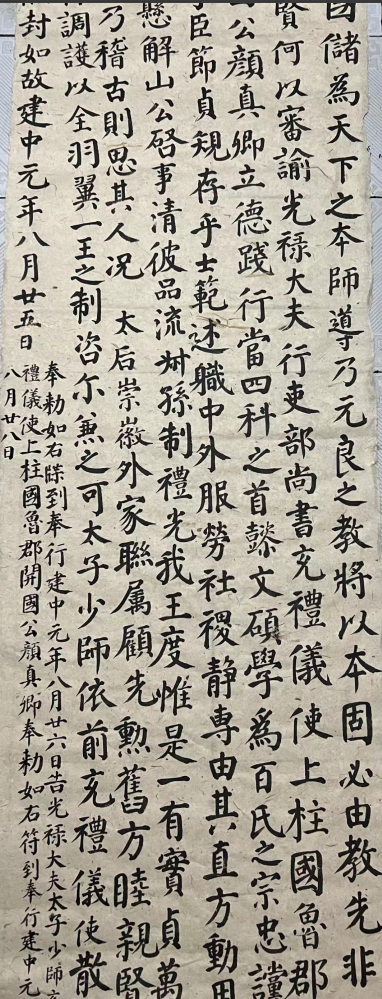 國儲為天下之本師導乃元良之教將以本固必由教先非
賢何以審諭光禄大夫行吏部尚書充禮儀使上柱國魯郡
公顔真卿立德踐行當四科之首懿文碩學為百氏之宗忠讜
臣節貞規存乎士範述職中外服勞社稷静専由其直方動用
懸解山公啓事清彼品流叔孫制禮光我王度惟是一有實貞萬
乃稽古則思其人况 太后崇徽外家聯属顧先勲舊方睦親賢
調護以全羽翼一王之制咨尔兼之可太子少師依前充禮儀使散
封如故建中元年八月廿五日
奉勅如右牒到奉行建中元年八月廿六日告光禄大夫太子少師充
禮儀使上柱國魯郡開國公顔真卿奉勅如右符到奉行建中元
八月廿八日